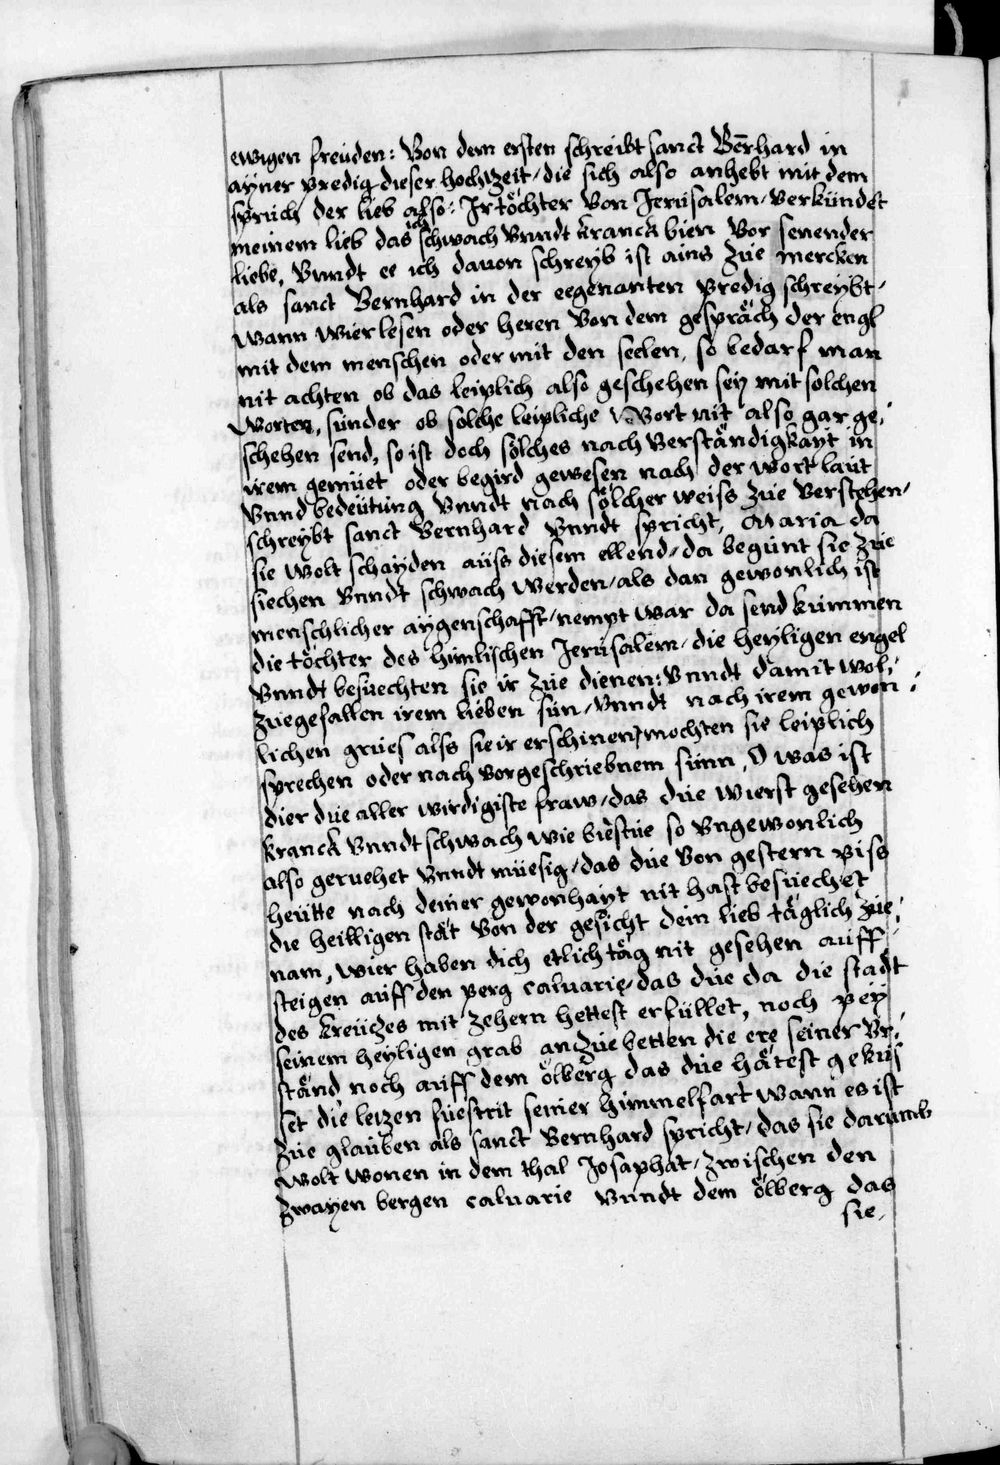 ewigen freüden: Von dem ersten schreibt sanct Bērhard in
ayner predig dieser hochtzeit / die sich also anhebt mit dem
sprüch der lieb also: Ir töchter von Jerusalem / verkündet
meinem lieb das ich schwach vnndt kranck bien vor senender
liebe, Vnndt ee ich dauon schreyb ist ains züe mercken
als sanct Bernhard in der eegenanten predig schreybt /
wann wier lesen oder heren von dem gespräch der engl
mit dem menschen oder mit den seelen, so bedarf man
nit achten ob das leiplich also geschehen sey mit solchen
worten, sünder ob solche leipliche wort nit also gar ge:
schehen send, so ist doch sölches nach verständigkayt in
irem gemüet oder begird gewesen nach der wort laüt
vnnd bedeütüng vnndt nach sölcher weiss züe verstehen /
schreybt sanct Bernhard vnndt spricht, Maria da
sie wolt schayden aüss diesem ellend / da begünt sie züe
siechen vnndt schwach werden / als dan gewonlich ist
menschlicher aygenschafft / nempt war da send kümmen
die töchter des himlischen Jerüsalem / die heyligen engel
vnndt besüechten sie ir züe dienen: vnndt damit wol:
züegefallen irem lieben sün / vnndt nach irem gewon:
lichen grües alss sie ir erschinen / mochten sie leiplich
sprechen oder nach vorgeschriebnem sünn, O was ist
dier düe aller wirdigiste fraw / das düe wierst gesehen
kranck vnndt schwach wie biestüe so vngewonlich
also gerüehet vnndt müesig / das düe von gestern piss
heütte nach deiner gewonhayt nit hast besüechet
die heilligen stät von der gesicht dein lieb täglich züe:
nam, wier haben dich etlich täg nit gesehen aüff:
steigen aüff den perg caluarie / das düe da die stadt
des kreützes mit zehern hettest erfüllet, noch pey
seinem heyligen grab anzüebetten die ere seiner vr:
ständ noch aüff dem ölberg das düe hätest geküs
set die letzen füestrit seiner himmelfart wann es ist
züe glaüben als sanct Bernhard spricht / das sie darumb
wolt wonen in dem thal Josaphat / zwischen den
zwayen bergen caluarie vnndt dem ölberg das
sie